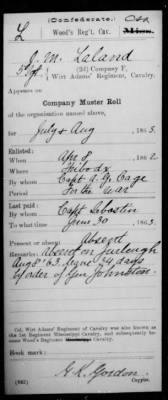 (Confederate.)
L Wood's Reg't, Cav. Miss.
J. M. Laland
5 Sgt, (2d) Company F,
Wirt Adams' Regiment, Cavalry.
Company Muster Roll
of the organization named above,
for July & Aug, 1863.
Enlisted:
When Apr 8, 1862
Where
By whom Capt Cage
Period For the War
Last paid:
By whom Capt Sebastin
To what time June 30, 1863
Present or absent Absent
Remarks: Absent on furlough
Aug 8 '63 24 days
by order of Gen Johnston.
Col. Wirt Adams' Regiment of Cavalry was also known as
the 1st Regiment Mississippi Cavalry, and subsequently be-
came Wood's Regiment Cavalry.
Book mark:
(642) Copyist.